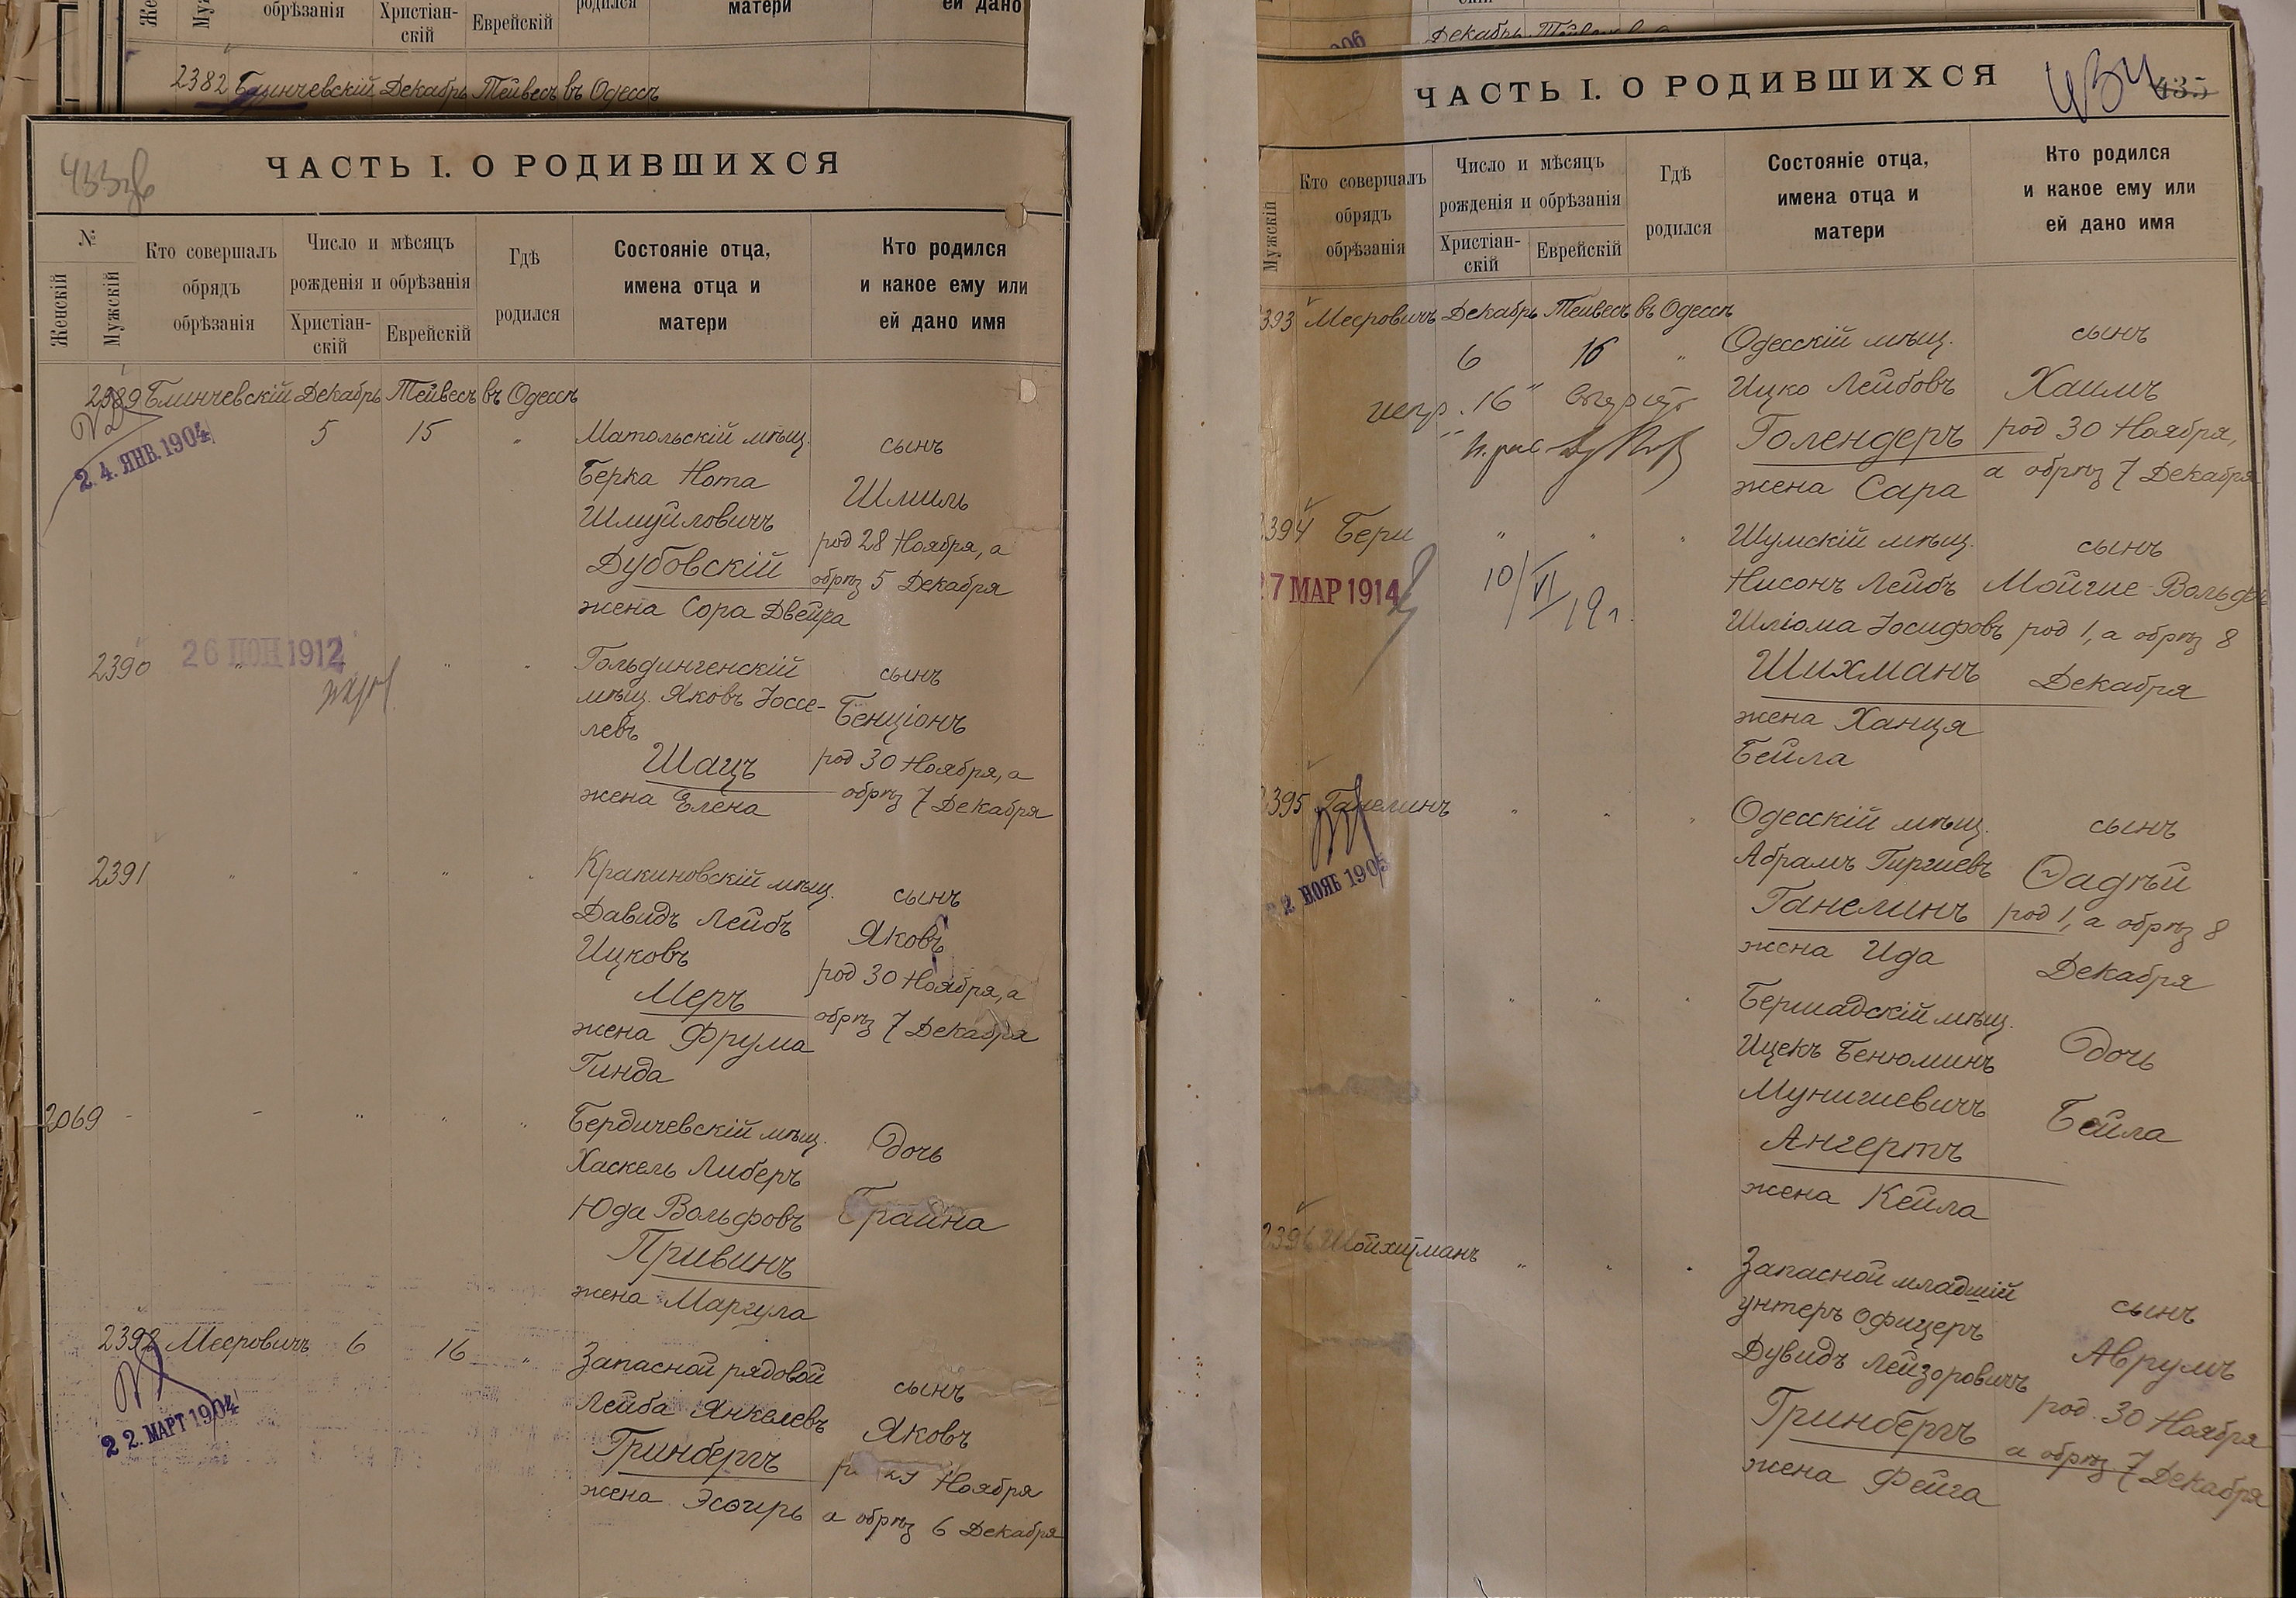 обрѣзанія
Христіан-
скій
Еврейскій
матери
ей дано
2382 Блинчевскій Декабрь Тейвесъ въ Одессѣ
ЧАСТЬ I. О РОДИВШИХСЯ
№
Женскій
Мужскій
Кто совершалъ
обрядъ
обрѣзанія
Число и мѣсяцъ
рожденія и обрѣзанія
Христіан-
скій
Еврейскій
Гдѣ
родился
Состояніе отца,
имена отца и
матери
Кто родился
и какое ему или
ей дано имя
2389 Блинчевскій Декабрь Тейвесъ въ Одессѣ
5 15 "
24. ЯНВ. 1904
Матольскій мѣщ.
Берка Нота
Шмуйловичъ
Дубовскій
жена Сора Двейра
сынъ
Шмиль
род 28 Ноября, а
обрѣз 5 Декабря
2390
26 ИЮН 1912
Гольдингенскій
мѣщ. Яковъ Іоссе-
левъ
Шацъ
жена Елена
сынъ
Бенціонъ
род 30 Ноября, а
обрѣз 7 Декабря
2391
Кракиновскій мѣщ.
Давидъ Лейбъ
Ицковъ
Меръ
жена Фрума
Гинда
сынъ
Яковъ
род 30 Ноября, а
обрѣз 7 Декабря
2069
Бердичевскій мѣщ.
Хаскель Либеръ
Юда Вольфовъ
Привинъ
жена Маргула
дочь
Брайна
2392 Мееровичъ 6 16 "
22. МАРТ 1904
Запасной рядовой
Лейба Янкелевъ
Гринбергъ
жена Эсѳирь
сынъ
Яковъ
29 Ноября
а обрѣз 6 Декабря
Декабрь
ЧАСТЬ I. О РОДИВШИХСЯ
434
435
Мужскій
Кто совершалъ
обрядъ
обрѣзанія
Число и мѣсяцъ
рожденія и обрѣзанія
Христіан-
скій
Еврейскій
Гдѣ
родился
Состояніе отца,
имена отца и
матери
Кто родился
и какое ему или
ей дано имя
2393 Мееровичъ Декабрь Тейвесъ въ Одессѣ
6 16 "
Одесскій мѣщ.
Ицко Лейбовъ
Голендеръ
жена Сара
сынъ
Хаимъ
род 30 Ноября,
а обрѣз 7 Декабря
2394 Бери
27 МАР 1914
10/VI 19 г.
Шумскій мѣщ.
Нисонъ Лейбъ
Шліома Іосифовъ
Шихманъ
жена Ханця
Бейла
сынъ
Мойше-Вольфъ
род 1, а обрѣз 8
Декабря
2395 Ганелинъ
22 НОЯБ 1905
Одесскій мѣщ.
Абрамъ Гиршевъ
Ганелинъ
жена Ида
сынъ
Фадѣй
род 1, а обрѣз 8
Декабря
Бершадскій мѣщ.
Ицекъ Бенюминъ
Мунишевичъ
Ангертъ
жена Кейла
дочь
Бейла
2396 Шойхитманъ
Запасной младшій
унтеръ офицеръ
Дувидъ Лейзоровичъ
Гринбергъ
жена Фейга
сынъ
Аврумъ
род. 30 Ноября
а обрѣз. 7 Декабря